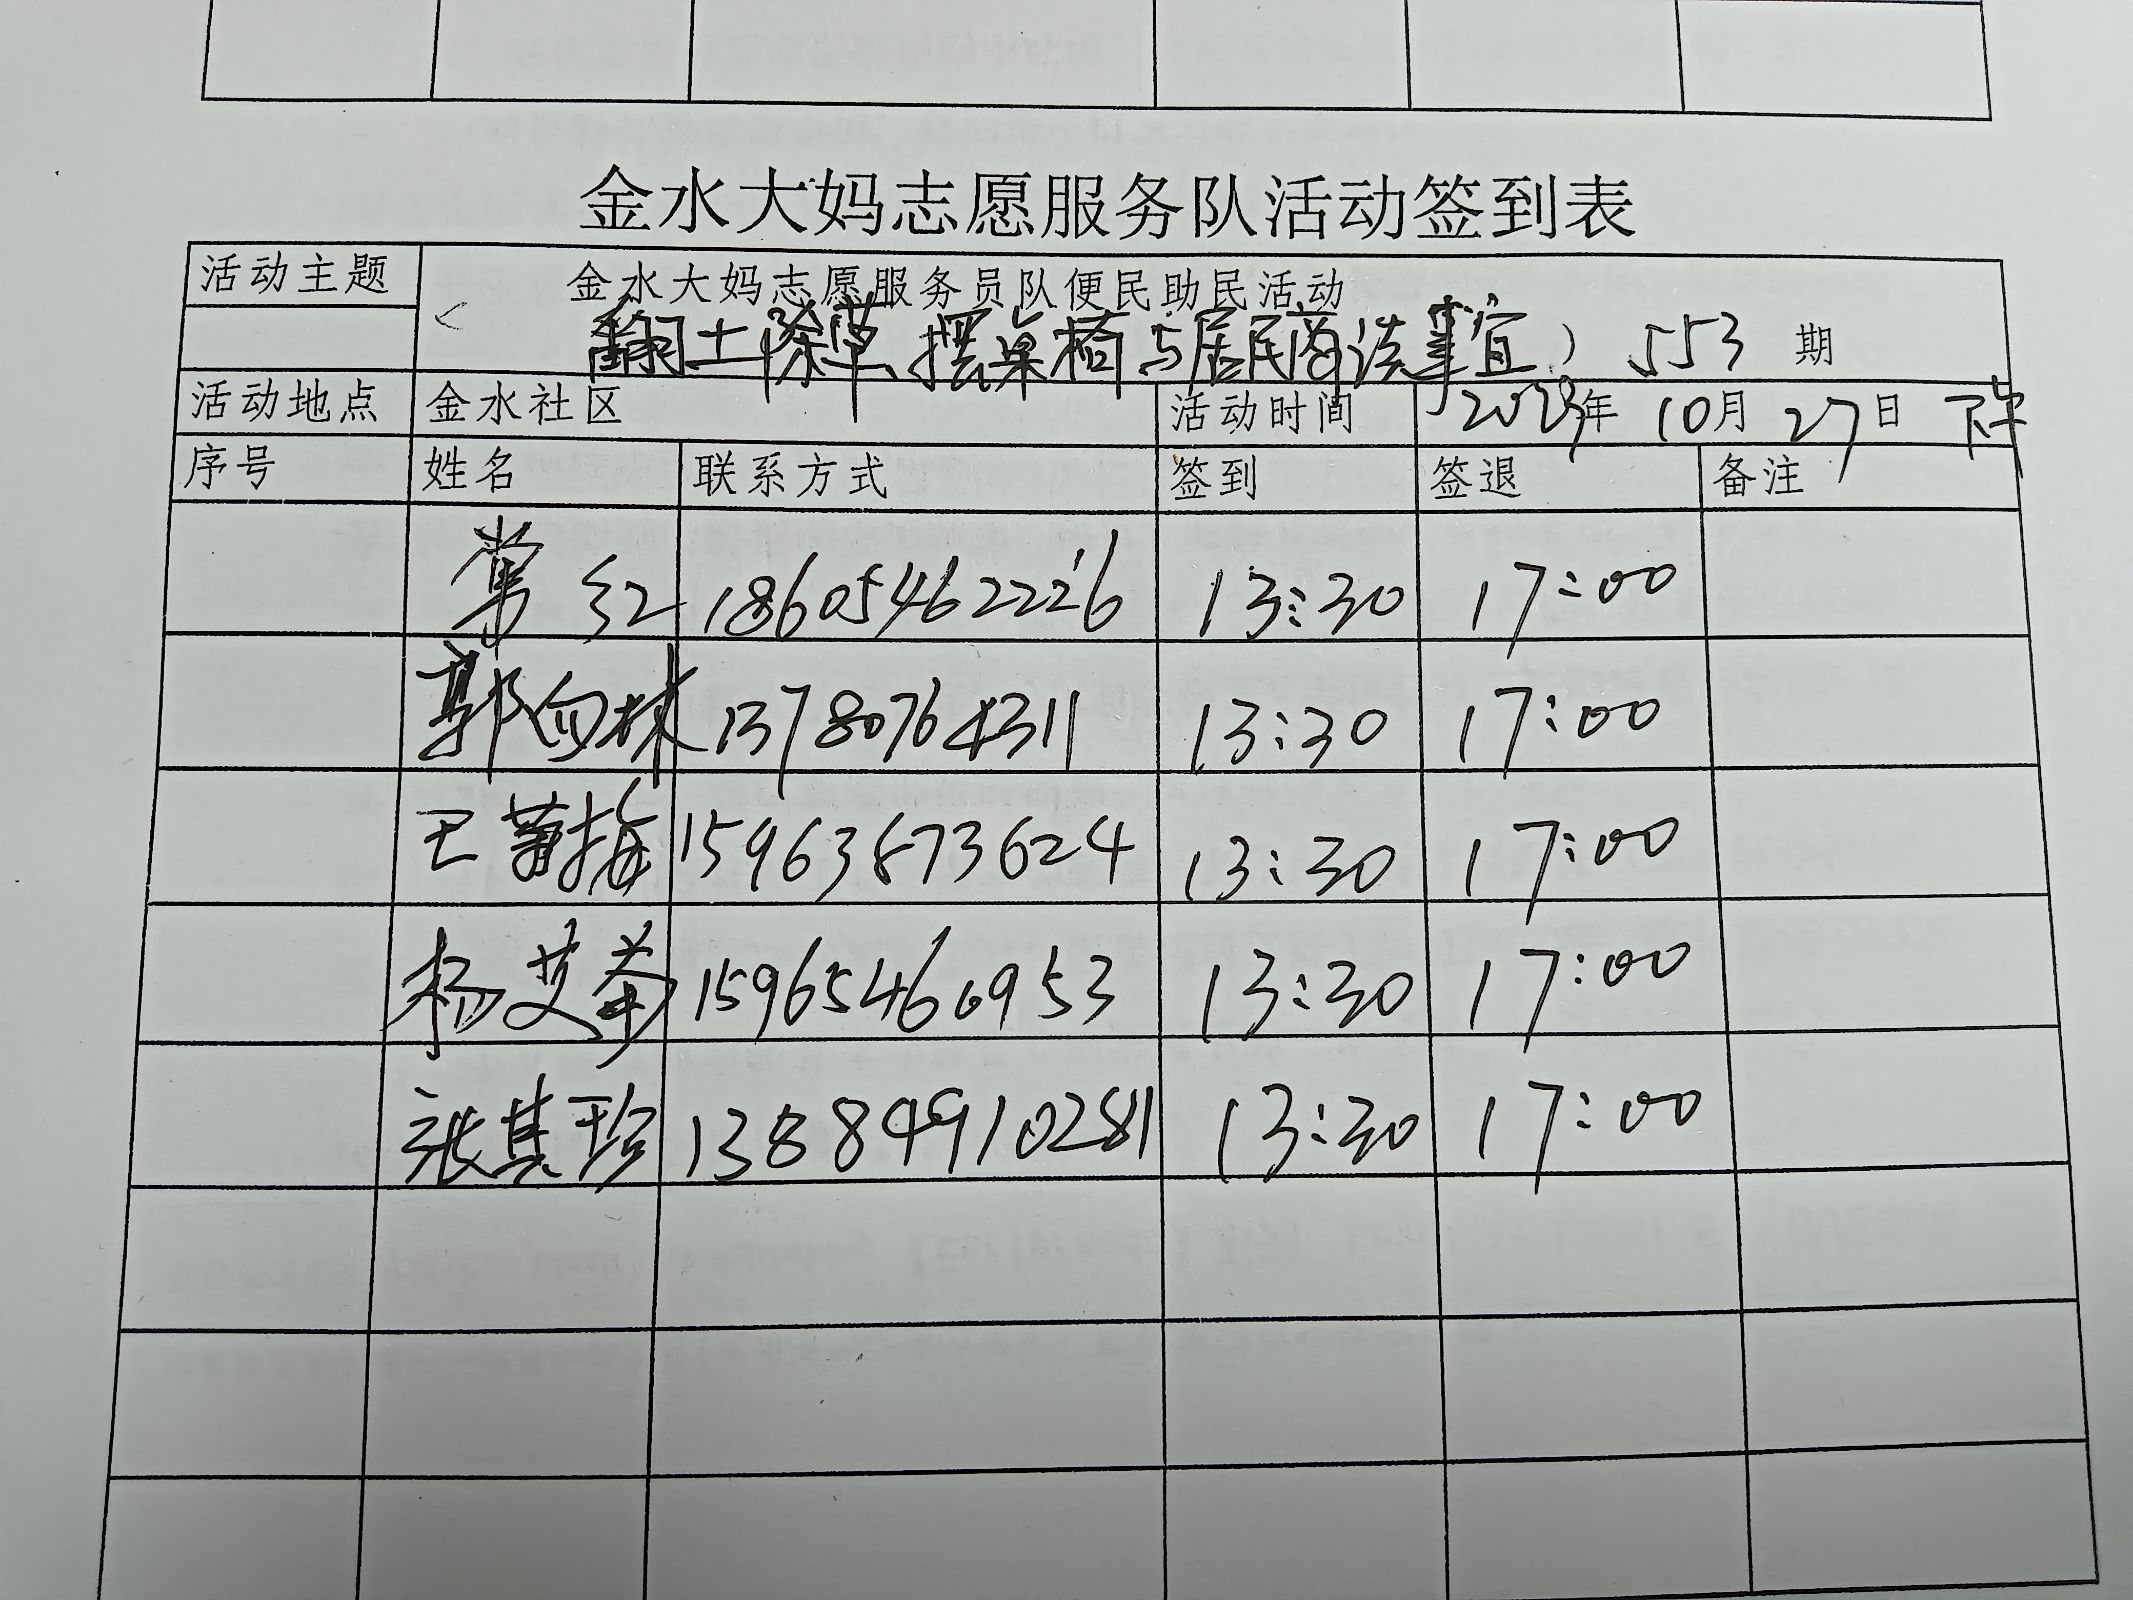 金水大妈志愿服务队活动签到表
活动主题
金水大妈志愿服务员队便民助民活动
翻土除草、摆桌椅与居民商谈事宜) 553 期
活动地点 金水社区 活动时间 年 10月 27日 下午
序号 姓名 联系方式 签到 签退 备注
常红 18605462226 13:30 17:00
郭向林 13780764311 13:30 17:00
王菊梅 15963873624 13:30 17:00
杨艾菊 15965460953 13:30 17:00
张其珍 13884910281 13:30 17:00